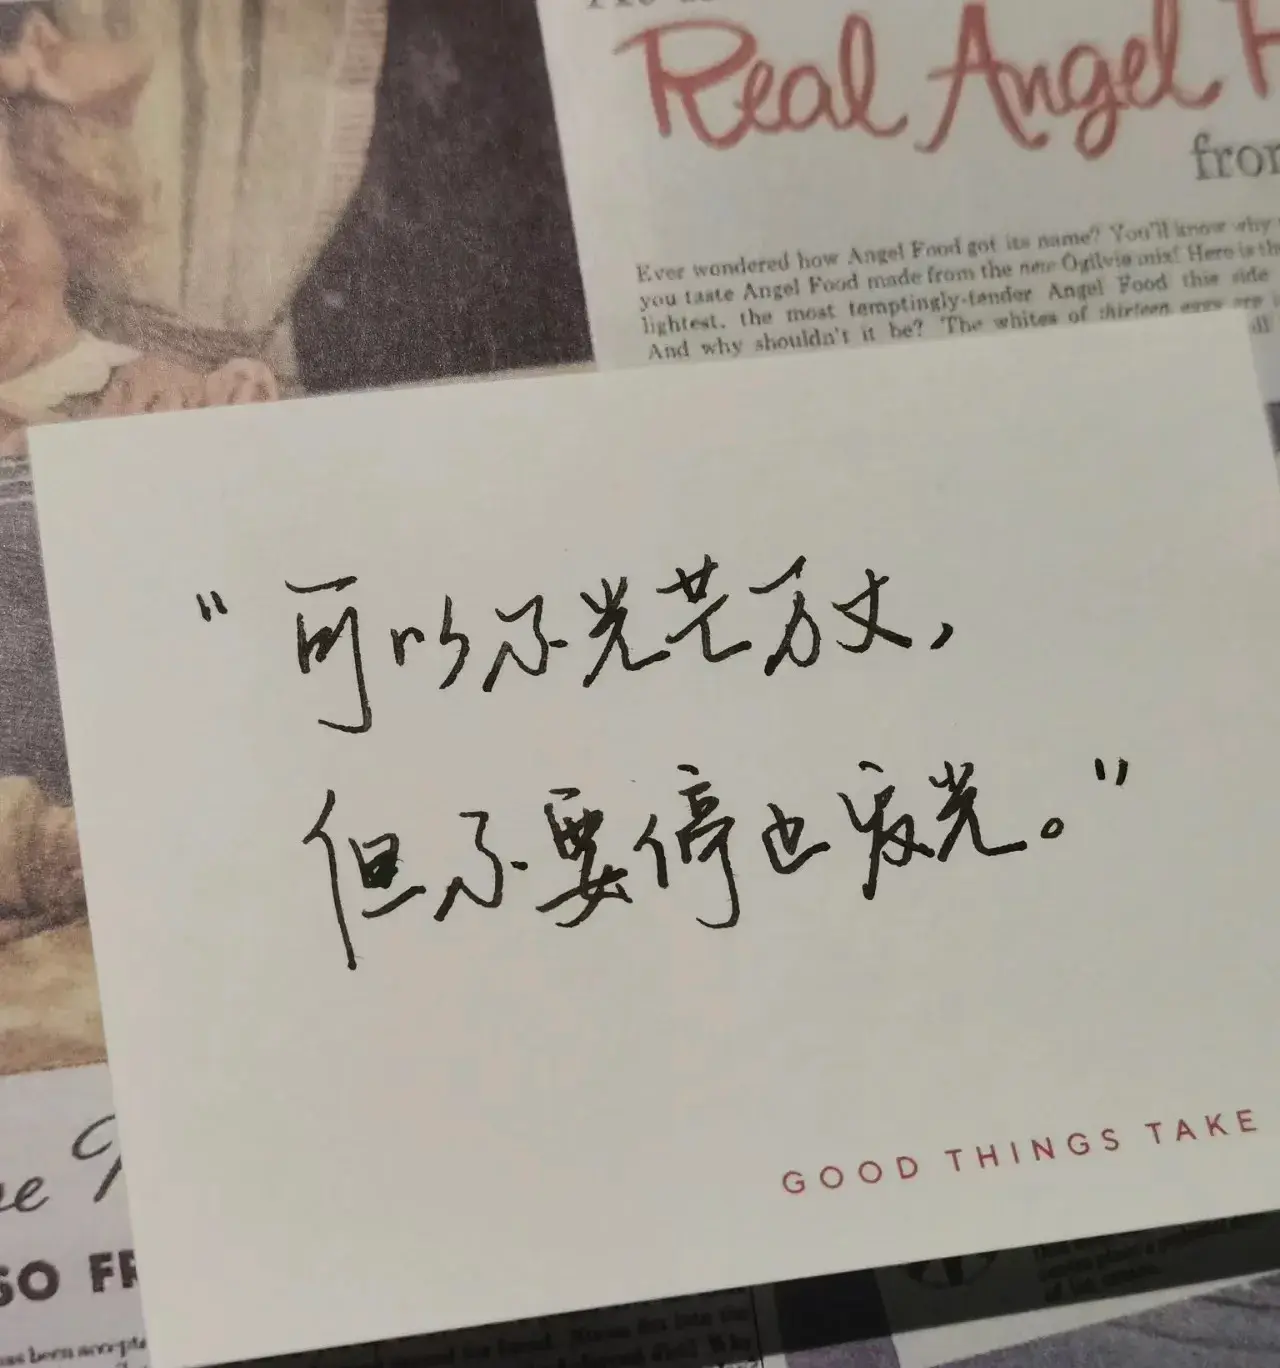 Real Angel
from
Ever wondered how Angel Food got its name? You'll know why
you taste Angel Food made from the new Ogilvie mix! Here is the
lightest, the most temptingly-tender Angel Food this side
And why shouldn't it be? The whites of thirteen eggs are
"可以不光芒万丈,
但不要停止发光。"
GOOD THINGS TAKE
SO FR
has been accepte